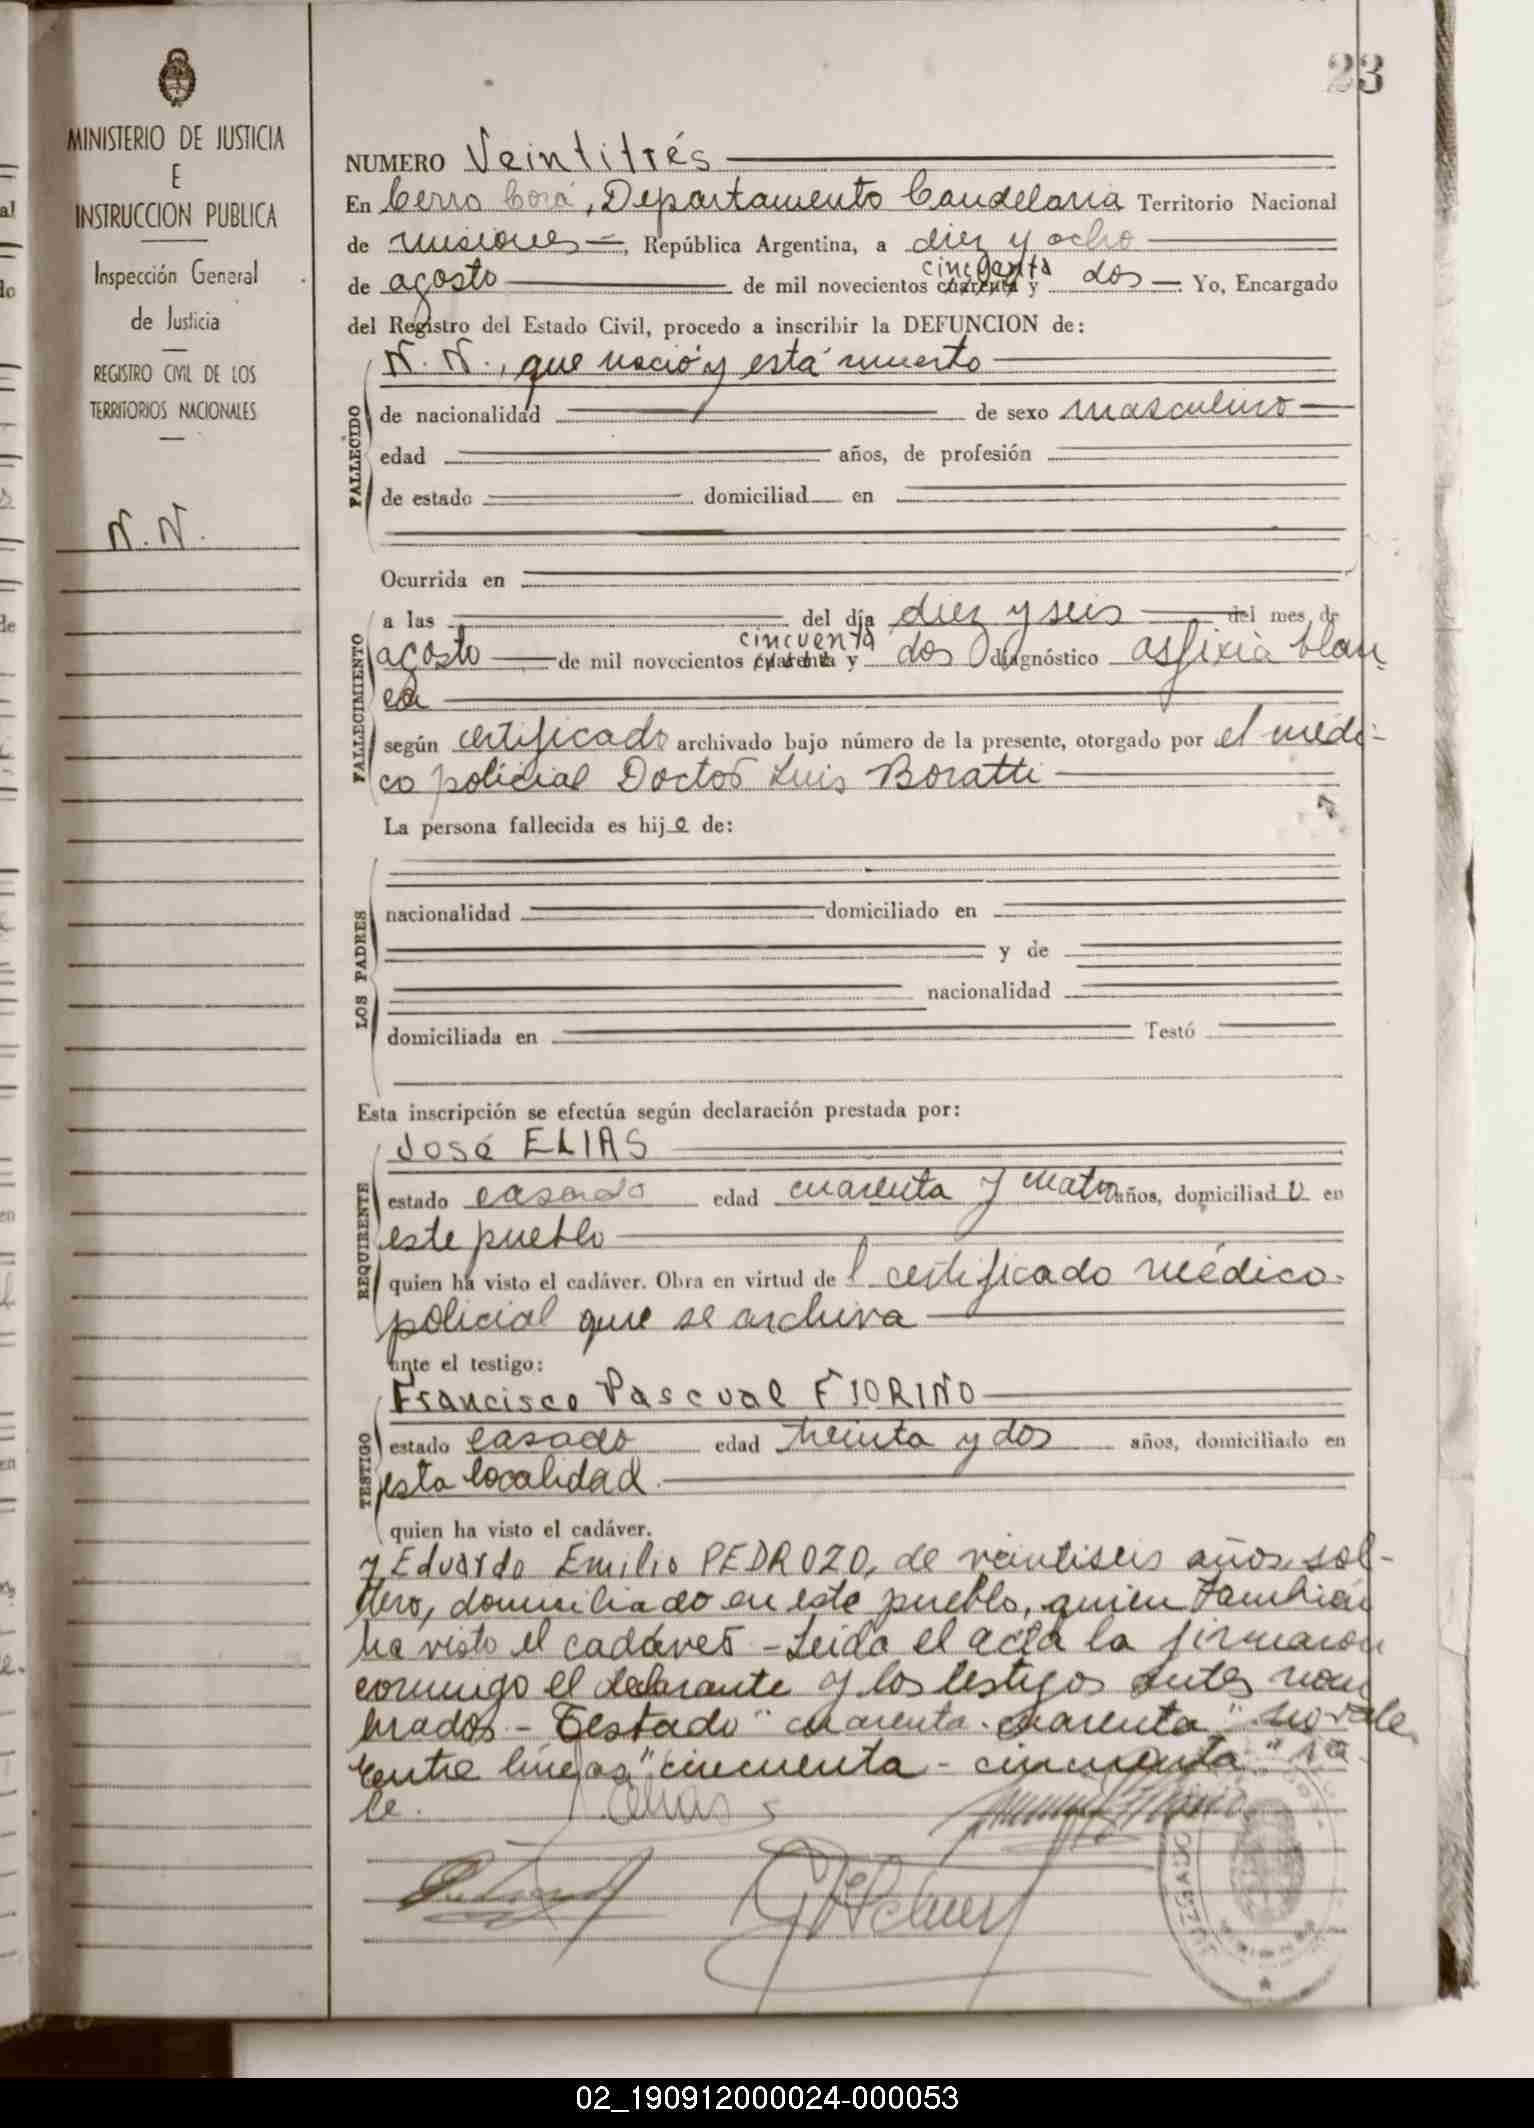 23
MINISTERIO DE JUSTICIA
E
INSTRUCCION PUBLICA
Inspección General
de Justicia
REGISTRO CIVIL DE LOS
TERRITORIOS NACIONALES
N. N.
NUMERO Veintitrés
En Cerro Corá, Departamento Candelaria Territorio Nacional
de misiones, República Argentina, a diez y ocho
cincuenta
de agosto de mil novecientos cuarenta y dos Yo, Encargado
del Registro del Estado Civil, procedo a inscribir la DEFUNCION de:
FALLECIDO
N. N., que nació y está muerto
de nacionalidad de sexo masculino
edad años, de profesión
de estado domiciliad en
Ocurrida en
FALLECIMIENTO
a las del día diez y seis del mes de
cincuenta
agosto de mil novecientos cuarenta y dos diagnóstico asfixia blan
ca
según certificado archivado bajo número de la presente, otorgado por el medi-
co policial Doctor Luis Boratti
La persona fallecida es hijo de:
LOS PADRES
nacionalidad domiciliado en
y de
nacionalidad
domiciliada en Testó
Esta inscripción se efectúa según declaración prestada por:
REQUIRENTE
José ELIAS
estado casado edad cuarenta y cuatro años, domiciliad o en
este pueblo
quien ha visto el cadáver. Obra en virtud del certificado médico
policial que se archiva
ante el testigo:
TESTIGO
Francisco Pascual FIORIÑO
estado casado edad treinta y dos años, domiciliado en
esta localidad.
quien ha visto el cadáver.
y Eduardo Emilio PEDROZO, de veintiseis años, sol-
tero, domiciliado en este pueblo, quien también
ha visto el cadáver - Leida el acta la firmaron
conmigo el declarante y los testigos antes nom
brados. - Testado "cuarenta - cuarenta" no vale
Entre líneas "cincuenta - cincuenta" va
le.
JUZGADO
02_190912000024-000053